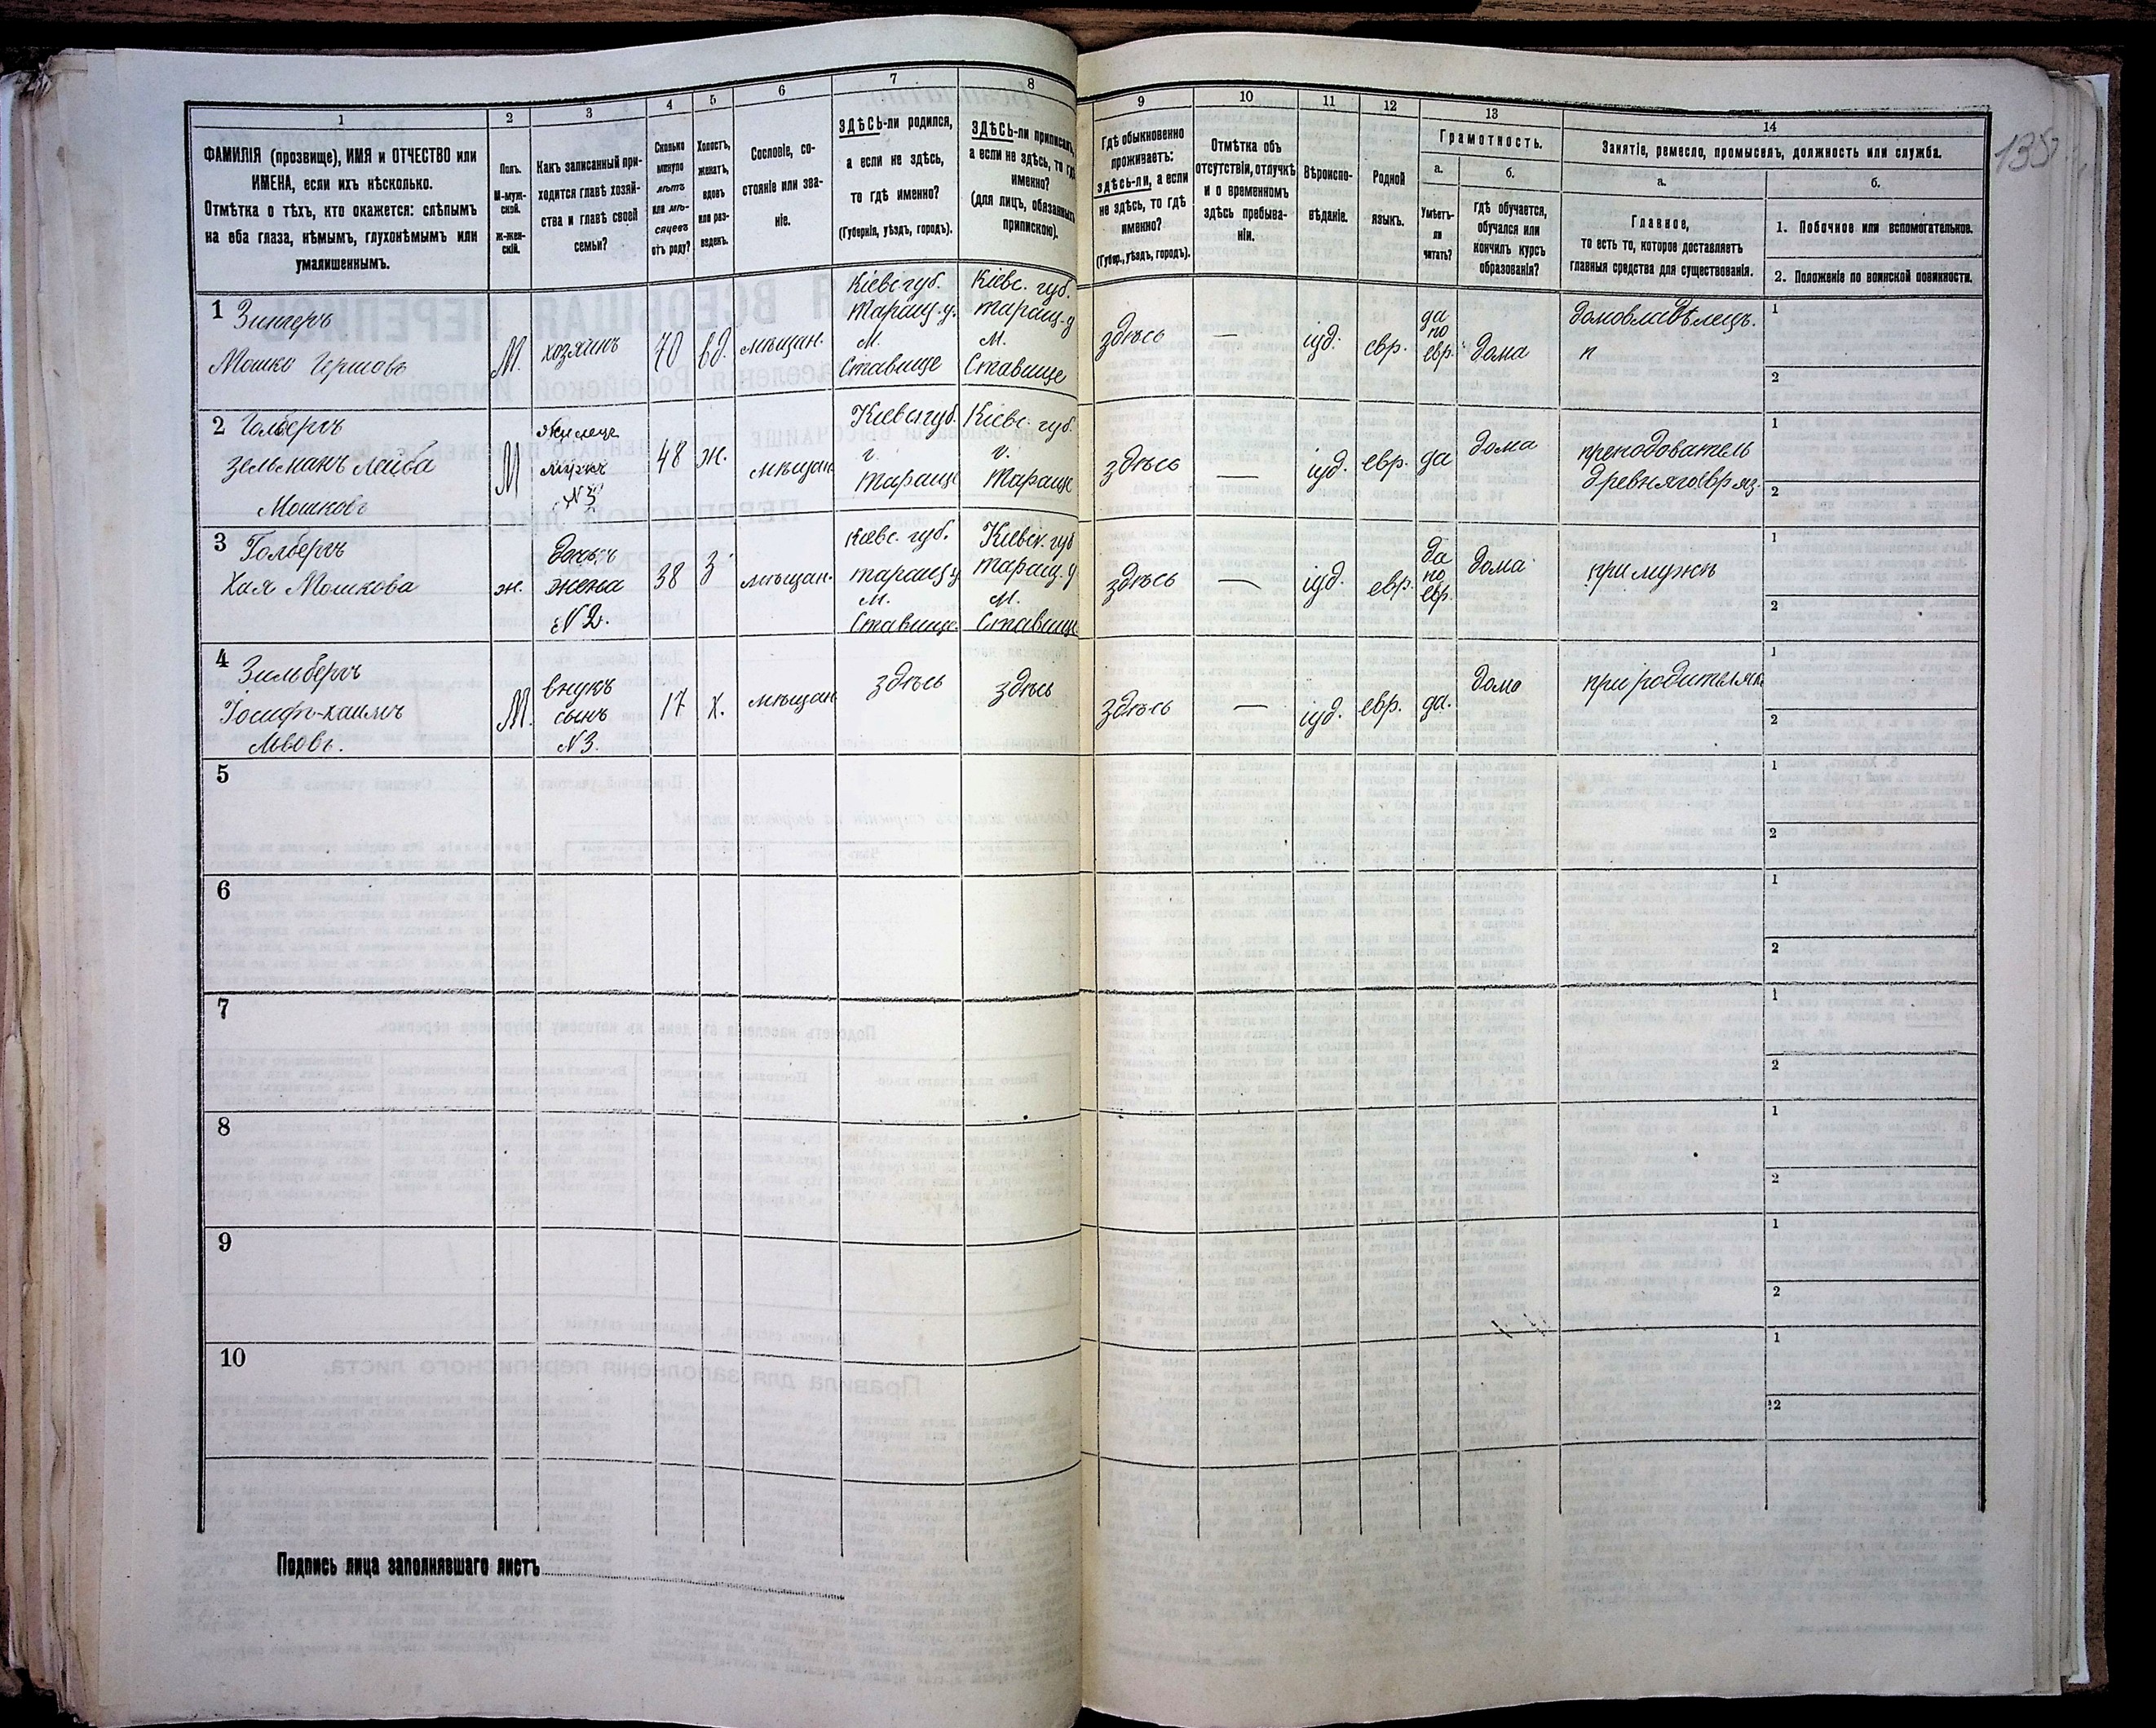 135
1 2 3 4 5 6 7 8 9 10 11 12 13 14
ФАМИЛІЯ (прозвище), ИМЯ и ОТЧЕСТВО или
ИМЕНА, если ихъ нѣсколько.
Отмѣтка о тѣхъ, кто окажется: слѣпымъ
на оба глаза, нѣмымъ, глухонѣмымъ или
умалишеннымъ.
Полъ.
М-муж-
ской.
Ж-жен-
скій.
Какъ записанный при-
ходится главѣ хозяй-
ства и главѣ своей
семьи?
Сколько
минуло
лѣтъ
или мѣ-
сяцевъ
отъ роду?
Холостъ,
женатъ,
вдовъ
или раз-
веденъ.
Сословіе, со-
стояніе или зва-
ніе.
ЗДѢСЬ-ли родился,
а если не здѣсь,
то гдѣ именно?
(Губернія, уѣздъ, городъ).
ЗДѢСЬ-ли приписанъ,
а если не здѣсь, то гдѣ
именно?
(для лицъ, обязанныхъ
припискою).
Гдѣ обыкновенно
проживаетъ:
здѣсь-ли, а если
не здѣсь, то гдѣ
именно?
(Губер., уѣздъ, городъ).
Отмѣтка объ
отсутствіи, отлучкѣ
и о временномъ
здѣсь пребыва-
ніи.
Вѣроиспо-
вѣданіе.
Родной
языкъ.
Грамотность.
а.
Умѣетъ-
ли
читать?
б.
Гдѣ обучается,
обучался или
кончилъ курсъ
образованія?
Занятіе, ремесло, промыселъ, должность или служба.
а.
Главное,
то есть то, которое доставляетъ
главныя средства для существованія.
б.
1. Побочное или вспомогательное.
2. Положеніе по воинской повинности.
1 Зингеръ
Мошко Гершовъ
М.
хозяинъ
70
вд.
мѣщан.
Кіевс. губ.
Таращ. у.
м.
Ставище
Кіевс. губ.
Таращ. у
м.
Ставище
здѣсь
—
іуд.
евр.
да
по
евр.
дома
домовладѣлецъ.
п
1
2
2 Голбергъ
Зельманъ Лейба
Мошковъ
М
№3
48
ж.
мѣщан
Кіевс. губ.
г.
Тараще
Кіевс. губ.
г.
Тараще
здѣсь
—
іуд.
евр.
да
дома
преподователь
древняго евр яз.
1
2
3 Голбергъ
Хая Мошкова
ж.
дочь
жена
№2.
38
з
мѣщан.
Кіевс. губ.
Таращ у
м.
Ставище.
Кіевск. губ
Таращ. у
м.
Ставище
здѣсь
—
іуд.
евр.
да
по
евр.
дома
при мужѣ
1
2
4 Зильбергъ
Іосифъ-Хаимъ
Львовъ.
М.
внукъ
сынъ
№3.
17
х.
мѣщан
здѣсь
здѣсь
здѣсь
—
іуд.
евр.
да.
дома
при родителяхъ
1
2
5
1
2
6
1
2
7
1
2
8
1
2
9
1
2
10
1
2
Подпись лица заполнявшаго листъ